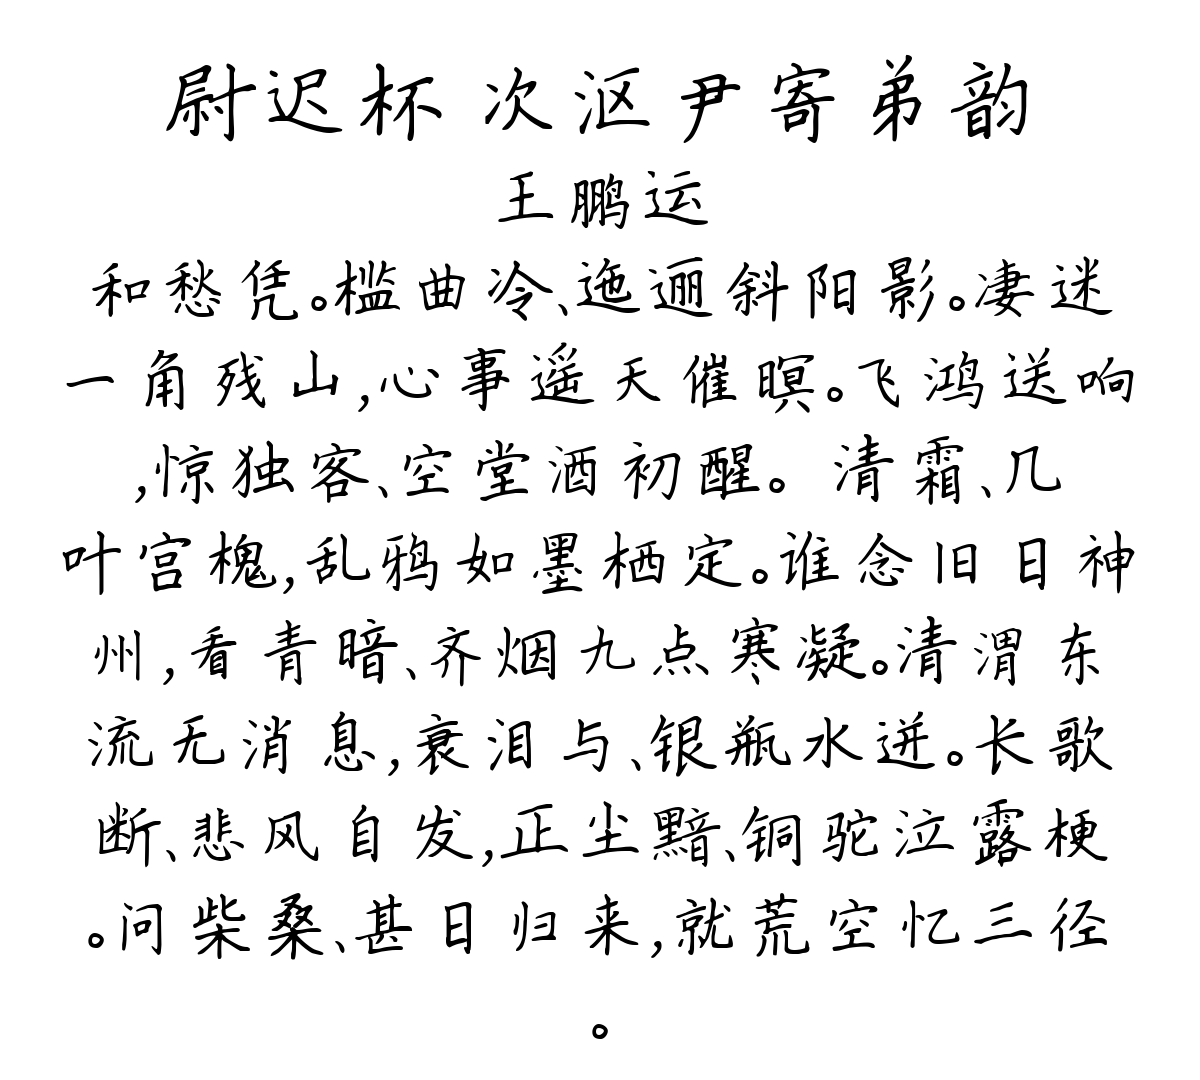 尉迟杯 次沤尹寄弟韵
王鹏运
和愁凭。槛曲冷、迤逦斜阳影。凄迷
一角残山,心事遥天催暝。飞鸿送响
,惊独客、空堂酒初醒。 清霜、几
叶宫槐,乱鸦如墨栖定。谁念旧日神
州,看青暗、齐烟九点寒凝。清渭东
流无消息,衰泪与、银瓶水迸。长歌
断、悲风自发,正尘黯、铜驼泣露梗
。问柴桑、甚日归来,就荒空忆三径
。